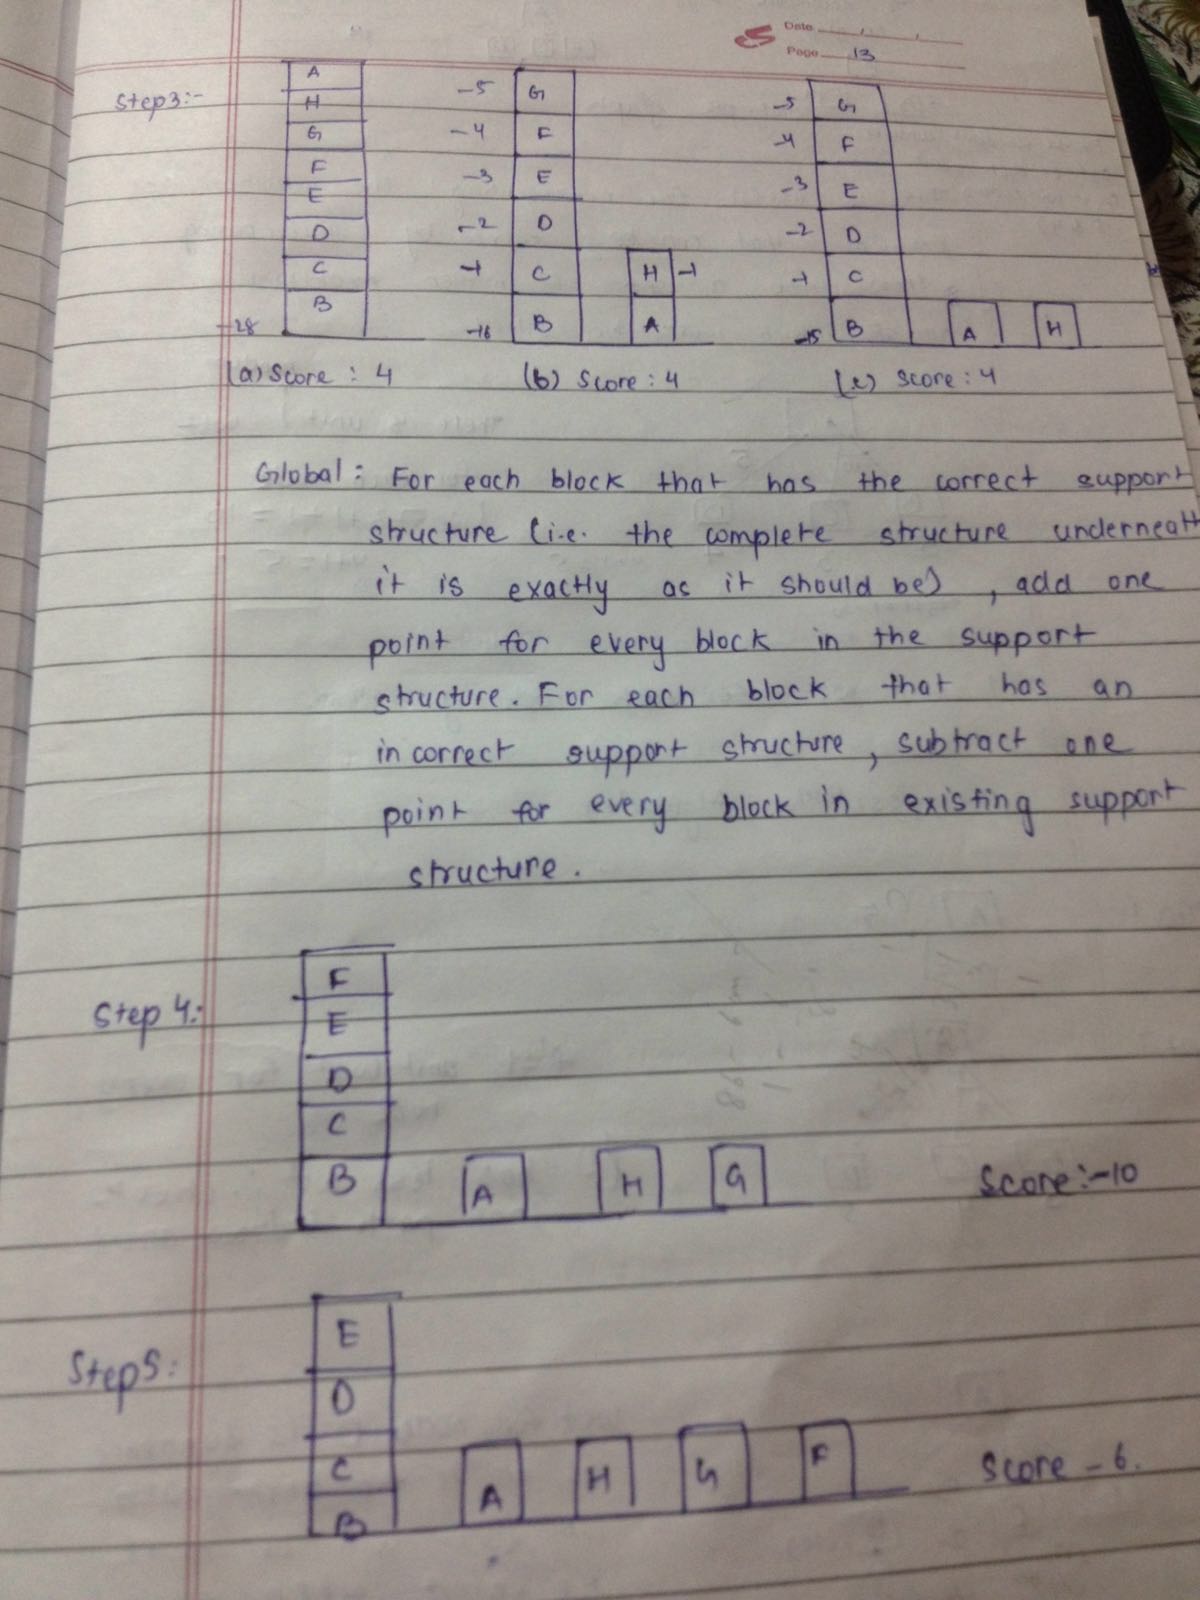 Date
Page 13
Step3:-
A
H
G
F
E
D
C
B
+28
-5 G
-4 F
-3 E
-2 D
-1 C
-16 B
H -1
A
-5 G
-4 F
-3 E
-2 D
-1 C
-15 B
A H
(a) Score : 4
(b) Score : 4
(c) Score : 4
Global : For each block that has the correct support
structure (i.e. the complete structure underneath
it is exactly as it should be) , add one
point for every block in the support
structure. For each block that has an
incorrect support structure, subtract one
point for every block in existing support
structure.
Step 4:-
F
E
D
C
B A H G Score:-10
Step5:
E
D
C
B A H G F Score - 6.